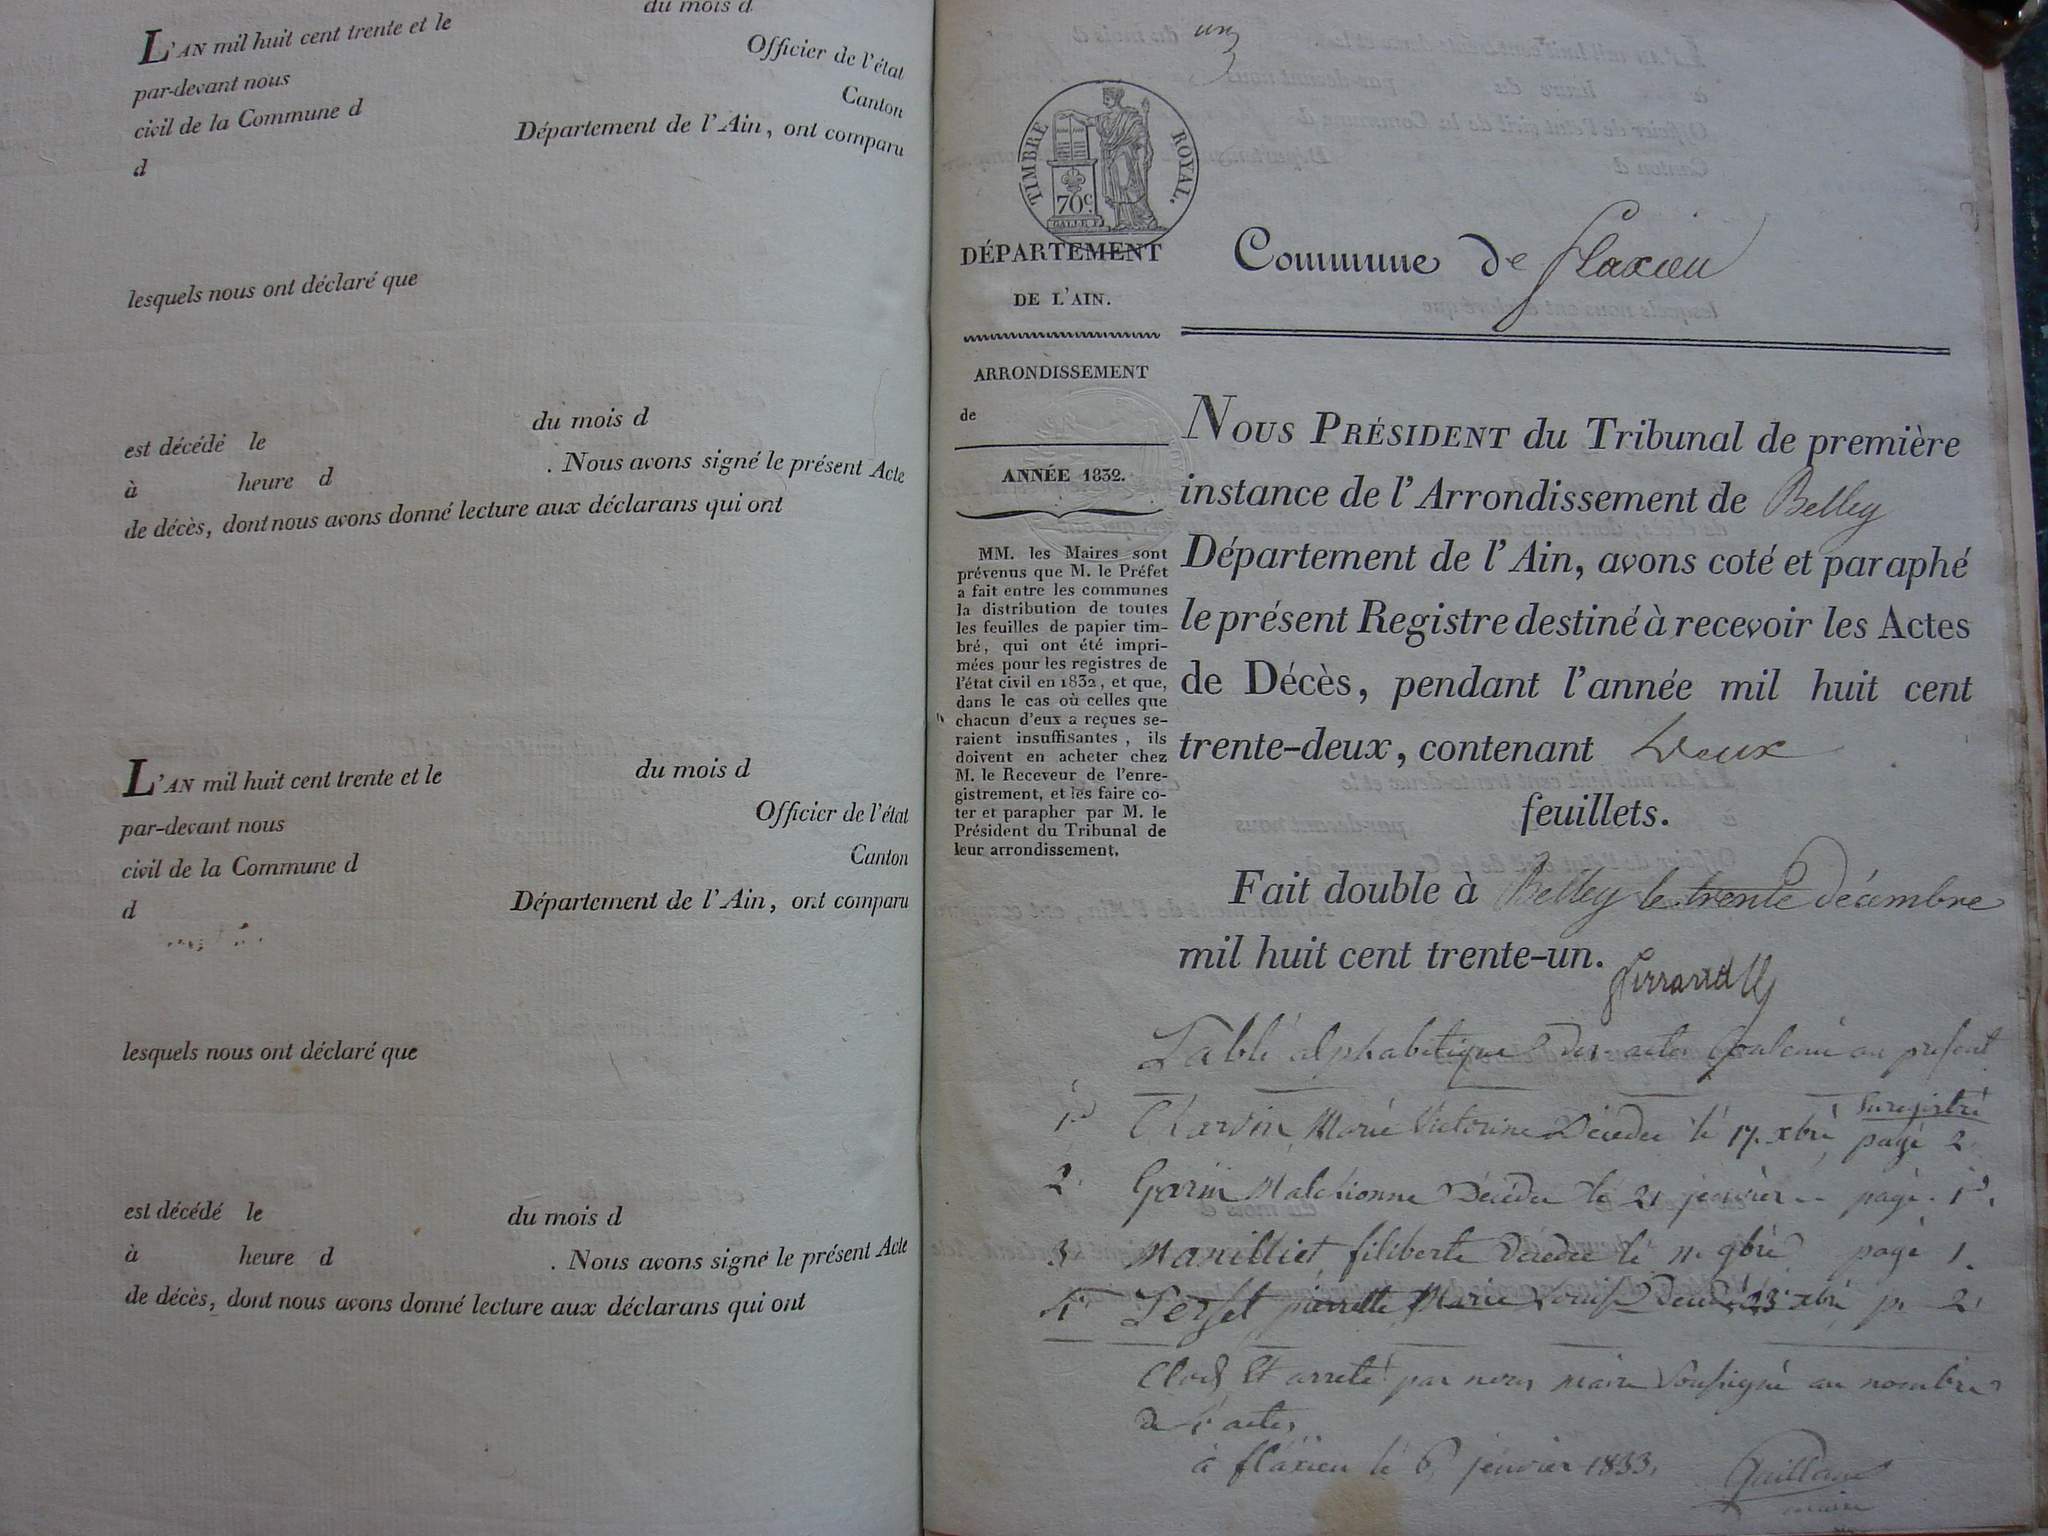 du mois d
L'AN mil huit cent trente et le
par-devant nous Officier de l'état
civil de la Commune d Canton
d Département de l'Ain, ont comparu
lesquels nous ont déclaré que
est décédé le du mois d
à heure d . Nous avons signé le présent Acte
de décès, dont nous avons donné lecture aux déclarans qui ont
L'AN mil huit cent trente et le du mois d
par-devant nous Officier de l'état
civil de la Commune d Canton
d Département de l'Ain, ont comparu
lesquels nous ont déclaré que
est décédé le du mois d
à heure d . Nous avons signé le présent Acte
de décès, dont nous avons donné lecture aux déclarans qui ont
un
TIMBRE ROYAL.
70c.
DÉPARTEMENT
DE L'AIN.
ARRONDISSEMENT
de
ANNÉE 1832.
MM. les Maires sont
prévenus que M. le Préfet
a fait entre les communes
la distribution de toutes
les feuilles de papier tim-
bré, qui ont été impri-
mées pour les registres de
l'état civil en 1832, et que,
dans le cas où celles que
chacun d'eux a reçues se-
raient insuffisantes, ils
doivent en acheter chez
M. le Receveur de l'enre-
gistrement, et les faire co-
ter et parapher par M. le
Président du Tribunal de
leur arrondissement.
Commune de flaxieu
NOUS PRÉSIDENT du Tribunal de première
instance de l'Arrondissement de Belley
Département de l'Ain, avons coté et paraphé
le présent Registre destiné à recevoir les Actes
de Décès, pendant l'année mil huit cent
trente-deux, contenant Deux
feuillets.
Fait double à Belley le trente décembre
mil huit cent trente-un.
Table alphabetique des actes Contenu au present
Enregistré
1. Charvin Marie Victorine Décédée le 17. xbre, page 2
2. Gavin Decédée le 21 janvier page 1.
3 Manilliet filiberte Decedée le 11. 9bre page 1.
4 pierrette Marie Louise Decedé 23 xbre p. 2.
Clos Et arreté par nous maire Soussigné au nombre
de 4 actes
à flaxieu le 6 janvier 1833.
maire